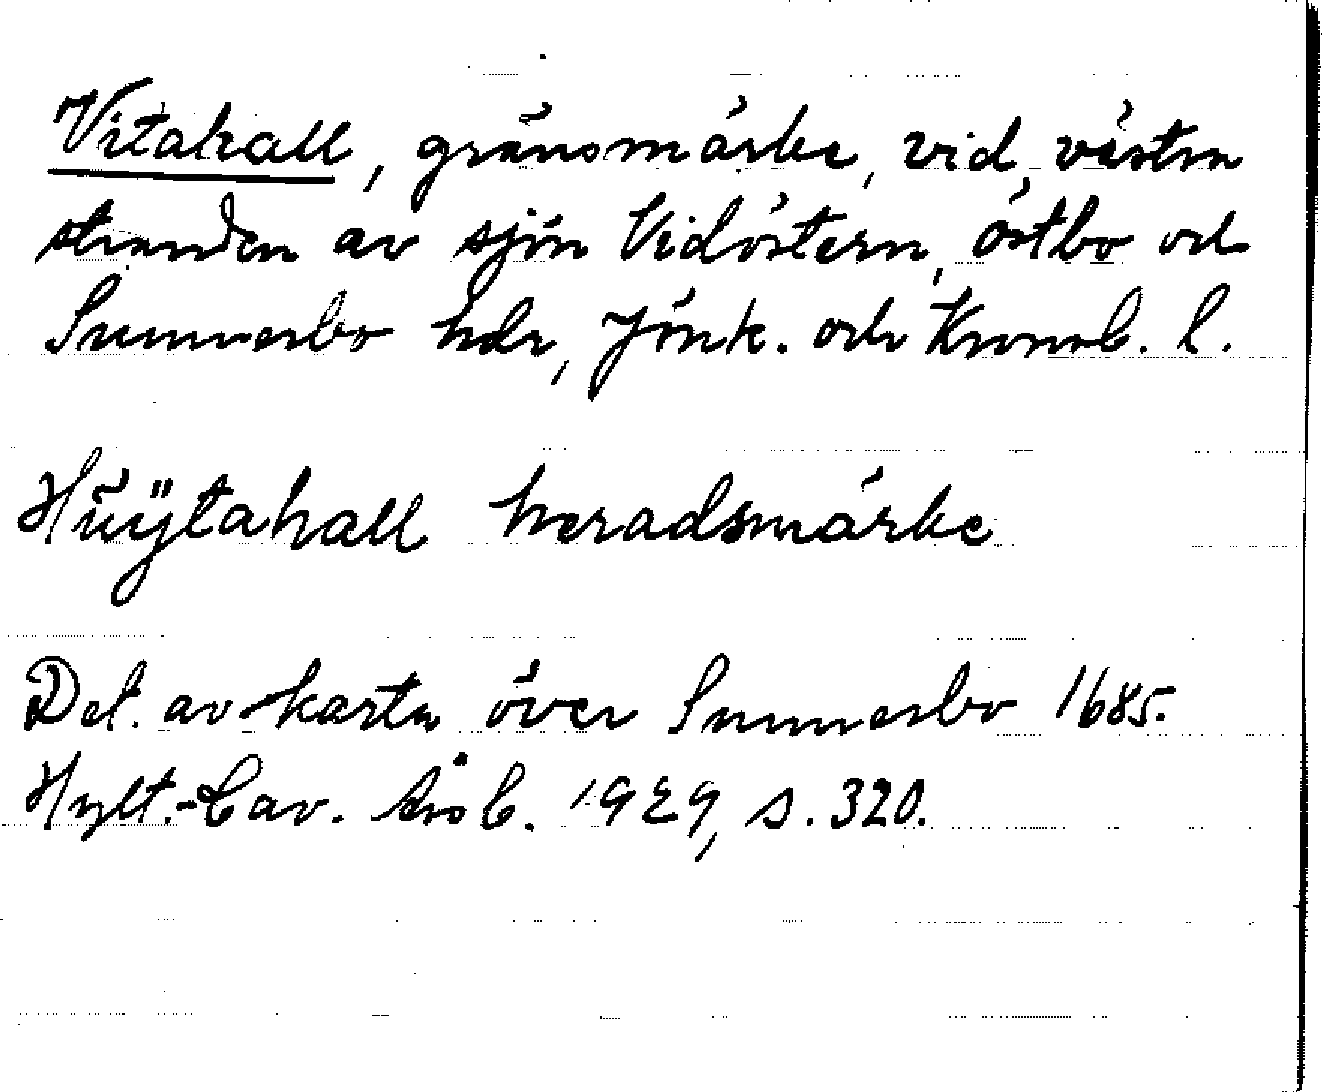 Vitahall, gränsmärke, vid västra
stranden av sjön Vidöstern, Östbo och
Sunnerbo hdr, Jönk. och Kronob. l.
Huÿtahall heradsmärke
Det. av karta över Sunnerbo 1685.
Hylt.-Cav. årsb. 1929, s. 320.